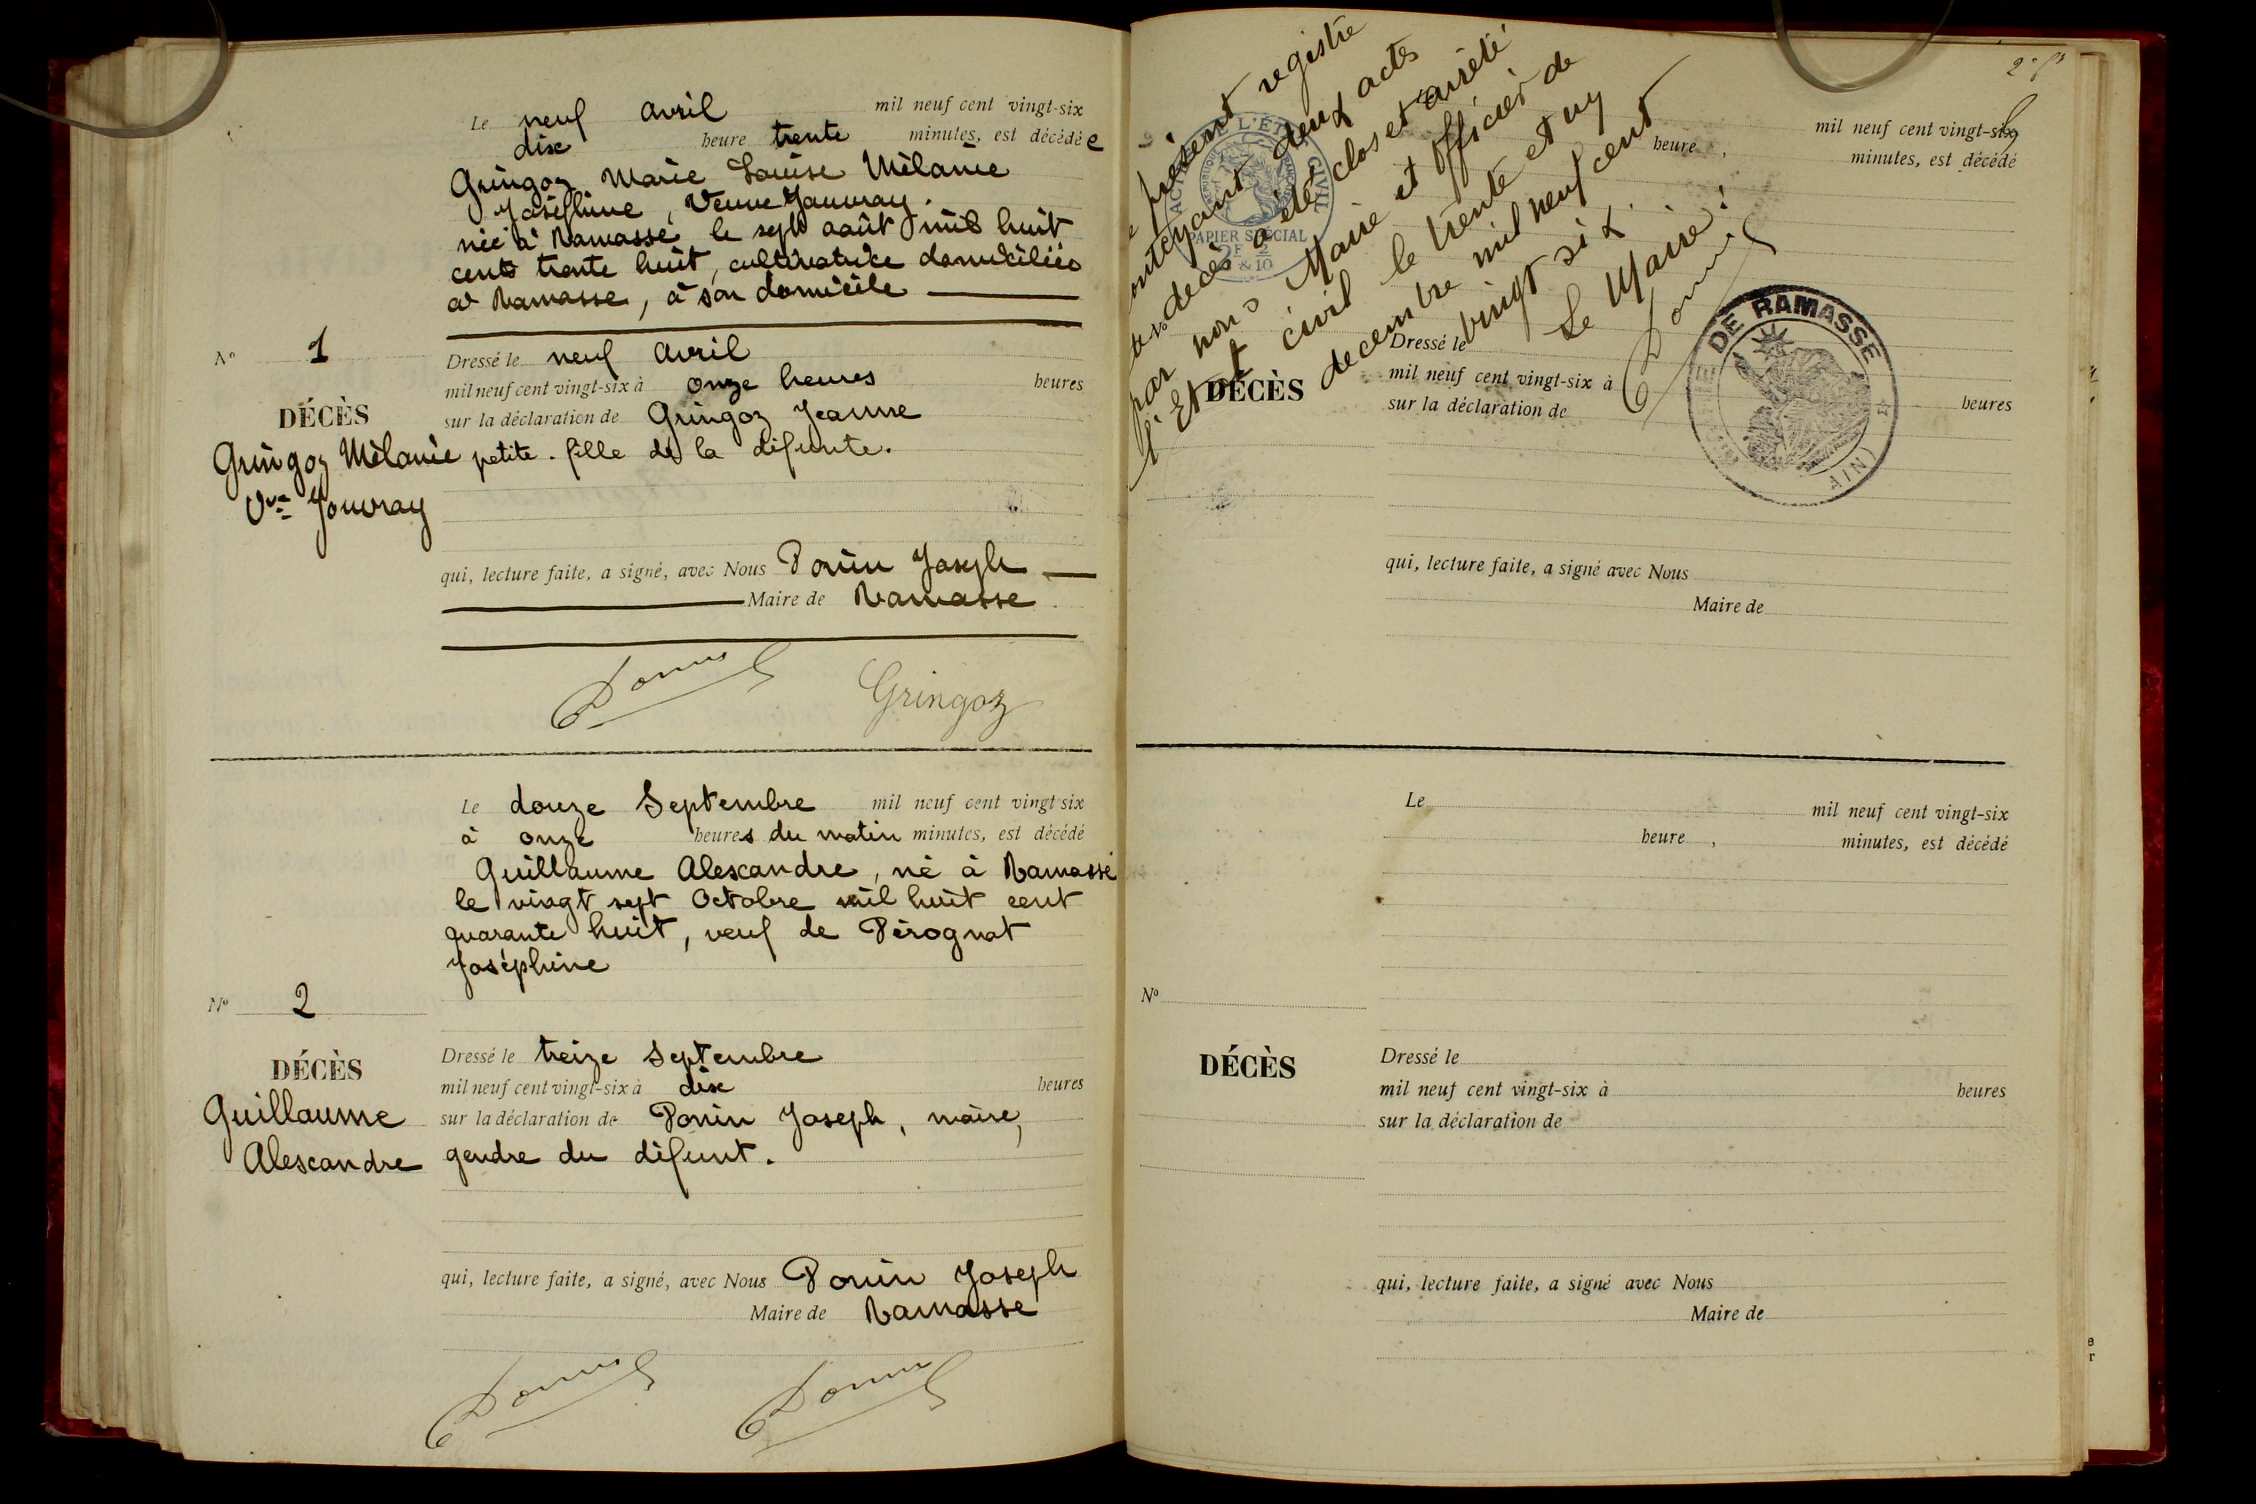 Le neuf avril mil neuf cent vingt-six
dix heure trente minutes, est décédée
Gringoz Marie Louise Mèlanie
Joséphine, Veuve Jouvray.
née à Ramasse le sept août mil huit
cents trente huit, cultivatrice domiciliée
à Ramasse, à son domicile
No 1
Dressé le neuf avril
mil neuf cent vingt-six à onze heures heures
DÉCÈS
sur la déclaration de Gringoz Jeanne
Gringoz Mèlanie
petite-fille de la défunte.
Vve Jouvray
qui, lecture faite, a signé, avec Nous Ponin Joseph
Maire de Ramasse
Ponin
Gringoz
Le douze Septembre mil neuf cent vingt-six
à onze heures du matin minutes, est décédé
Guillaume Alexandre, né à Ramasse
le vingt sept Octobre mil huit cent
quarante huit, veuf de Pérognat
Joséphine
No 2
Dressé le treize Septembre
DÉCÈS
mil neuf cent vingt-six à dix heures
Guillaume
sur la déclaration de Ponin Joseph, maire,
Alexandre
gendre du défunt.
qui, lecture faite, a signé, avec Nous Ponin Joseph
Maire de Ramasse
Ponin
Ponin
présent registre
contenant deux actes
de décès a été clos et arrêté
par nous Maire et Officier de
l'Etat civil le trente et un
decembre mil neuf cent
vingt six.
Le Maire:
Ponin
ACTES DE L'ÉTAT CIVIL
PAPIER SPÉCIAL
2F 2/10
MAIRIE DE RAMASSE
(AIN)
mil neuf cent vingt-six
heure, minutes, est décédé
Dressé le
mil neuf cent vingt-six à heures
DÉCÈS
sur la déclaration de
qui, lecture faite, a signé avec Nous
Maire de
Le mil neuf cent vingt-six
heure, minutes, est décédé
No
DÉCÈS
Dressé le
mil neuf cent vingt-six à heures
sur la déclaration de
qui, lecture faite, a signé avec Nous
Maire de